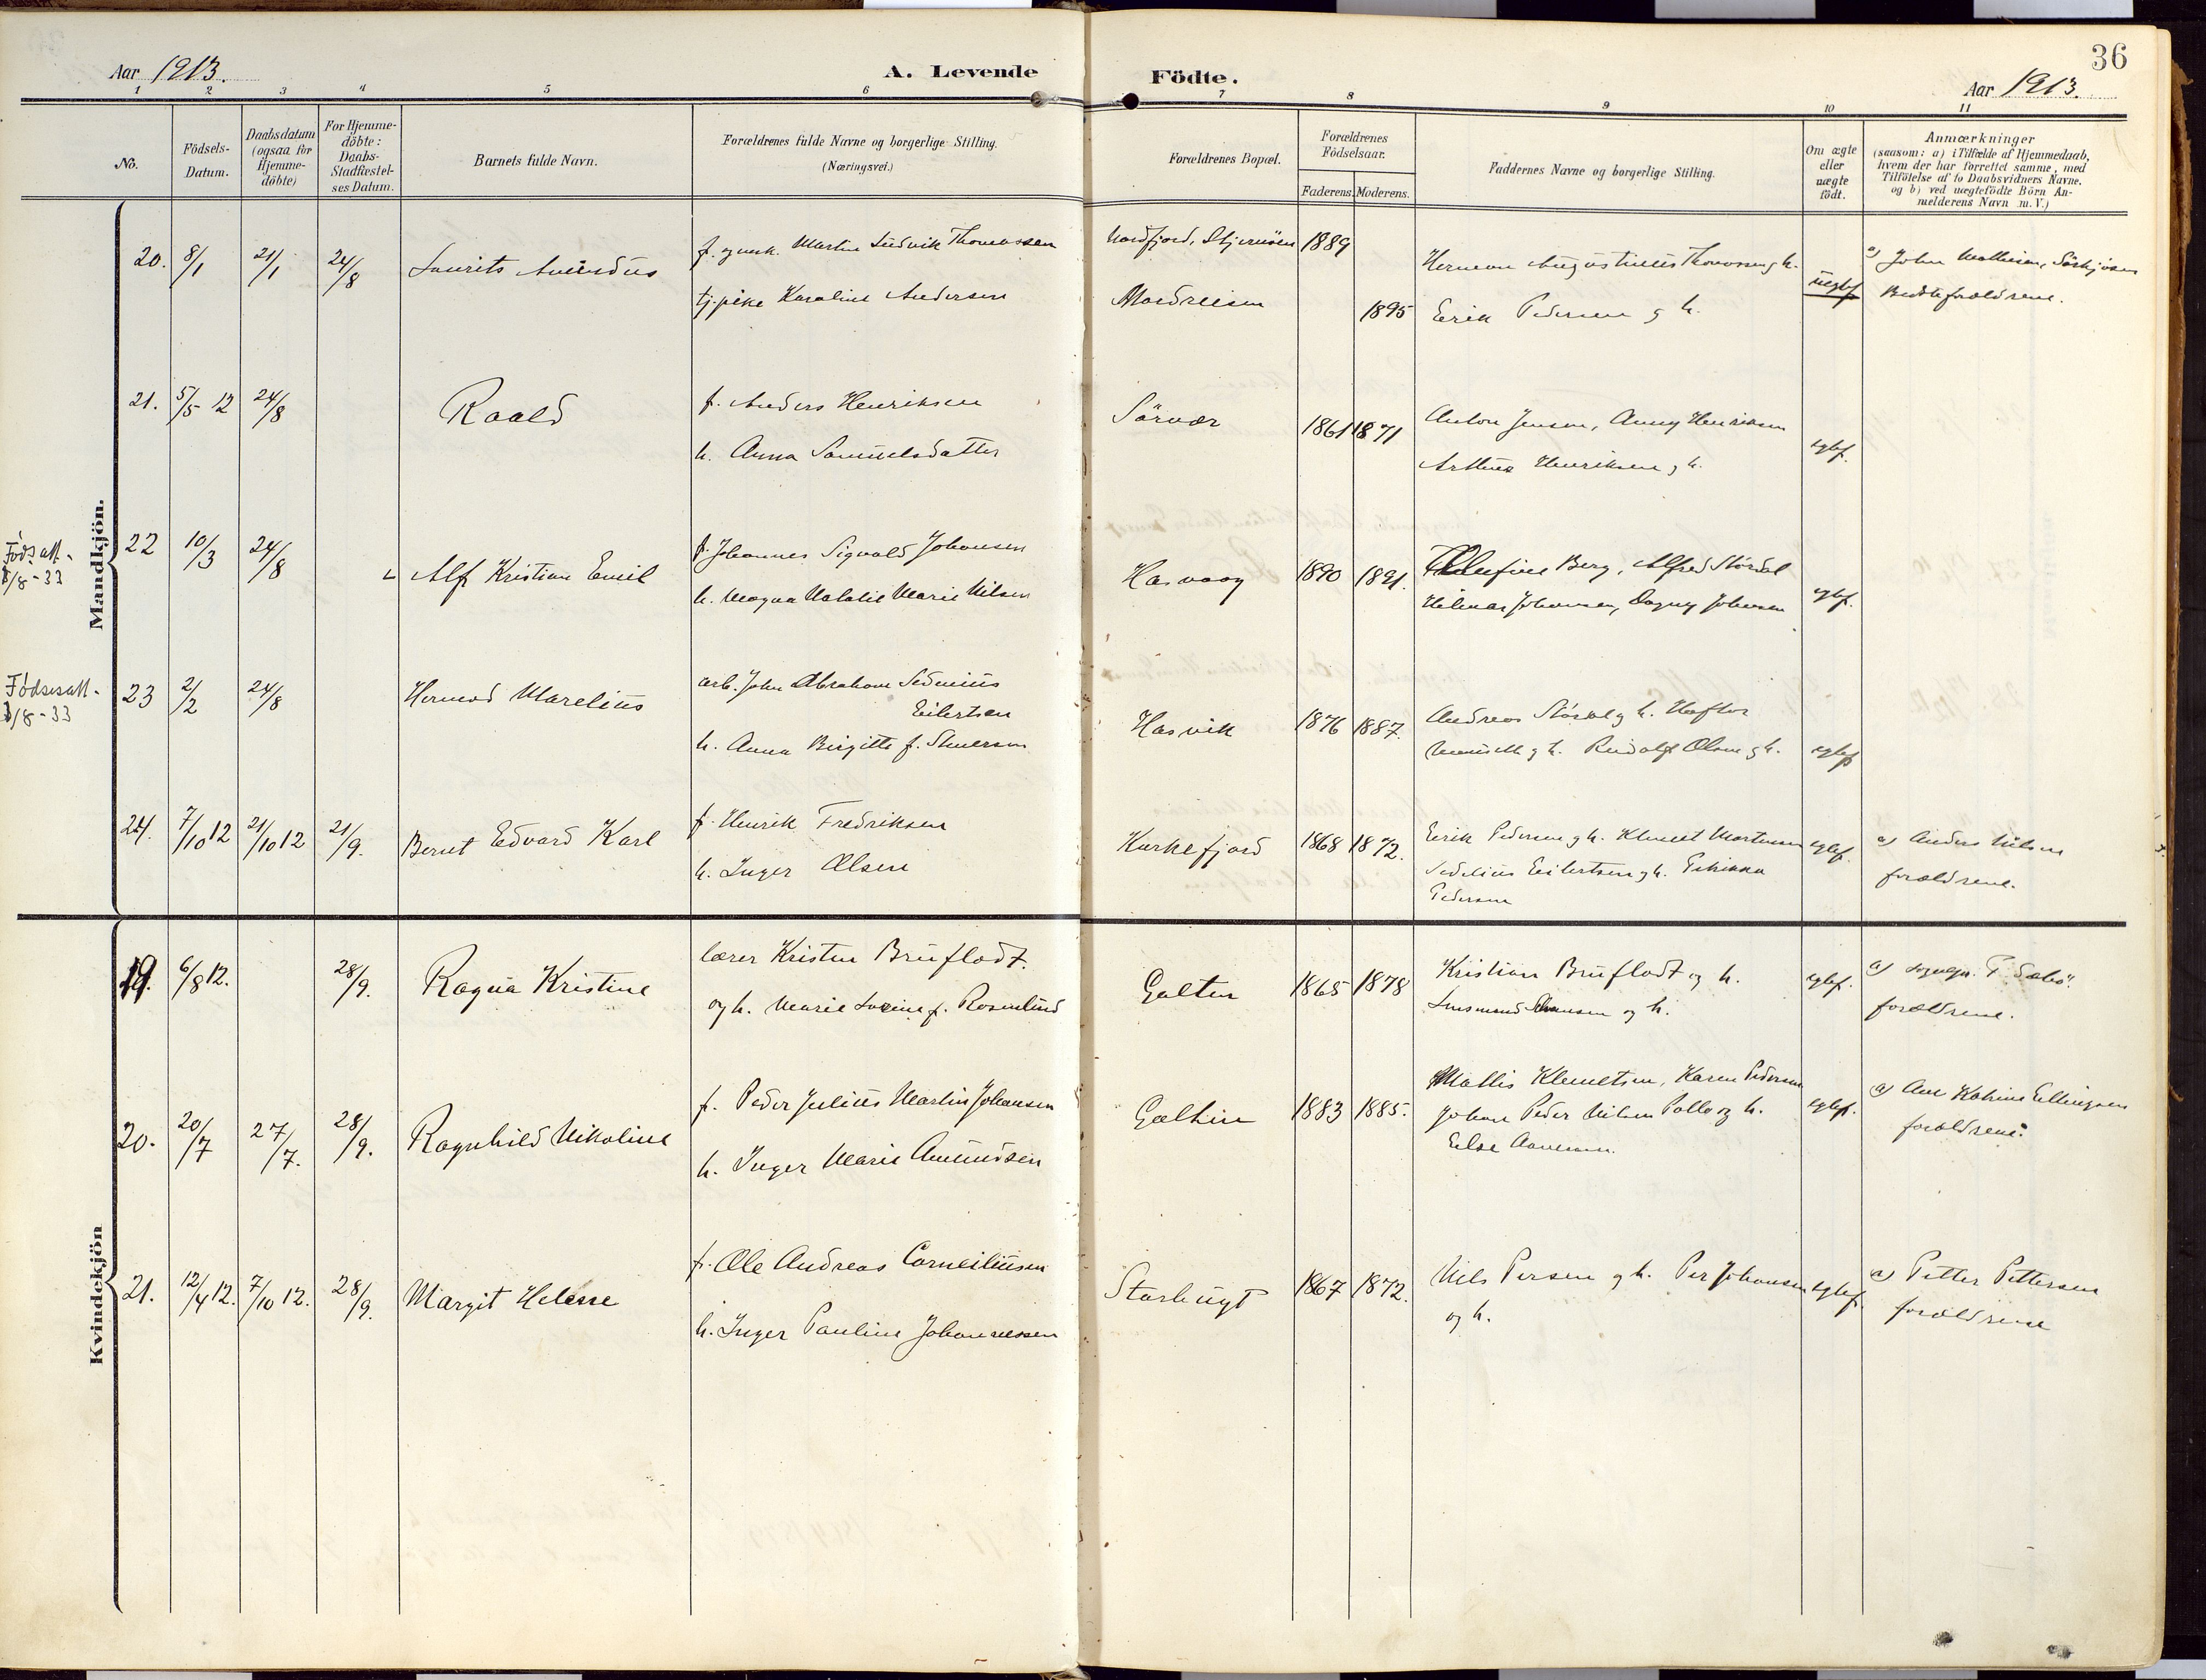 Aar 1913.
A. Levende
Födte.
36
Aar 1913.
1 2 3 4 5 6 7 8 9 10 11
No.
Födsels-
Datum.
Daabsdatum
(ogsaa for
Hjemme-
döbte)
For Hjemme-
döbte:
Daabs-
Stadfæstel-
ses Datum.
Barnets fulde Navn.
Forældrenes fulde Navne og borgerlige Stilling.
(Næringsvei.)
Forældrenes Bopæl.
Forældrenes
Födselsaar.
Faderens. Moderens.
Faddernes Navne og borgerlige Stilling.
Om ægte
eller
uægte
födt.
Anmærkninger
(saasom: a) i Tilfælde af Hjemmedaab,
hvem der har forrettet samme, med
Tilföielse af to Daabsvidners Navne.
og b) ved uægtefödte Börn An-
melderens Navn m. V.)
Mandkjön.
20. 8/1 21/1 24/8 Laurits Amandus
f. ogunk. Martin Ludvik Thomassen
tj.pike Karoline Andersen
Nordfjord, Stjernöen 1889
Nordreisen 1895
Herman Augustinus Thomassen g h.
Erik Pedersen g h.
uegtef
a) John Mathisen, Sörkjosen
Bedsteforældrene.
21. 5/5 12 24/8 Roald
f. Anders Henriksen
h. Anna Samuelsdatter
Sörvær 1861 1871
Anton Jensen, Anny Henriksen
Arthur Henriksen g h.
egtef.
Föds.att.
8/8-33
22 10/3 24/8 Alf Kristian Emil
f. Johannes Sigvald Johansen
h. Magna Natalie Marie Nilsen
Hasvaag 1890 1891.
Olufine Berg, Alfred Stördal
Hilmar Johansen, Dagny Johansen
egtef.
Födsesatt.
8/8-33
23 2/2 24/8 Hermod Marelius
arb. John Abraham Sedenius
Eilertsen
h. Anna Birgitte f.
Hasvik 1876 1887.
Andreas Stördal g h. Haftor
g h. Rudolf Olsen g h.
egtef
24. 7/10 12 21/10 12 21/9. Bernt Edvard Karl
f. Henrik Fredriksen
h. Inger Olsen
Kurkefjord 1868 1872.
Erik Pedersen g h. Klemet Mortensen
Sedelius Eilertsen g h.
Pedersen
egtef.
a) Anders Nilsen
forældrene.
Kvindekjön
19. 6/8 12. 28/9. Ragna Kristine
lærer Kristen Brufladt.
og h. Marie Lovine f. Rosenlund
Galten 1865 1878
Kristian Brufladt og h.
Hansen og h.
egtef.
a) sognepr. P. Sæbö.
forældrene.
20. 20/7 27/7. 28/9. Ragnhild Nikoline
f. Peder Julius Martin Johansen
h. Inger Marie Amundsen
Galten 1883 1885.
Mattis Klemetsen, Karen Pedersen
Johan Peder Nilsen Palle og h.
Else
egtef.
a) Ane Katrine Ellingsen
forældrene.
21. 12/4 12. 7/10 12. 28/9. Margit Helene
f. Ole Andreas Corneliusen
h. Inger Pauline Johannessen
Starbugt 1867 1872.
Nils Persen g h. Per Johansen
og h.
egtef.
a) Petter Pettersen
forældrene